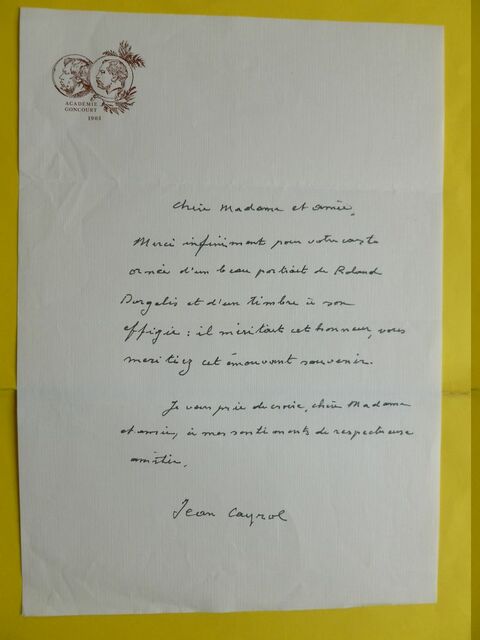 ACADÉMIE
GONCOURT
1903
chère Madame et amie,
Merci infiniment pour votre carte
ornée d'un beau portrait de Roland
Dorgelès et d'un timbre à son
effigie : il méritait cet honneur, vous
méritiez cet émouvant souvenir.
Je vous prie de croire, chère Madame
et amie, à mes sentiments de respectueuse
amitié,
Jean Cayrol